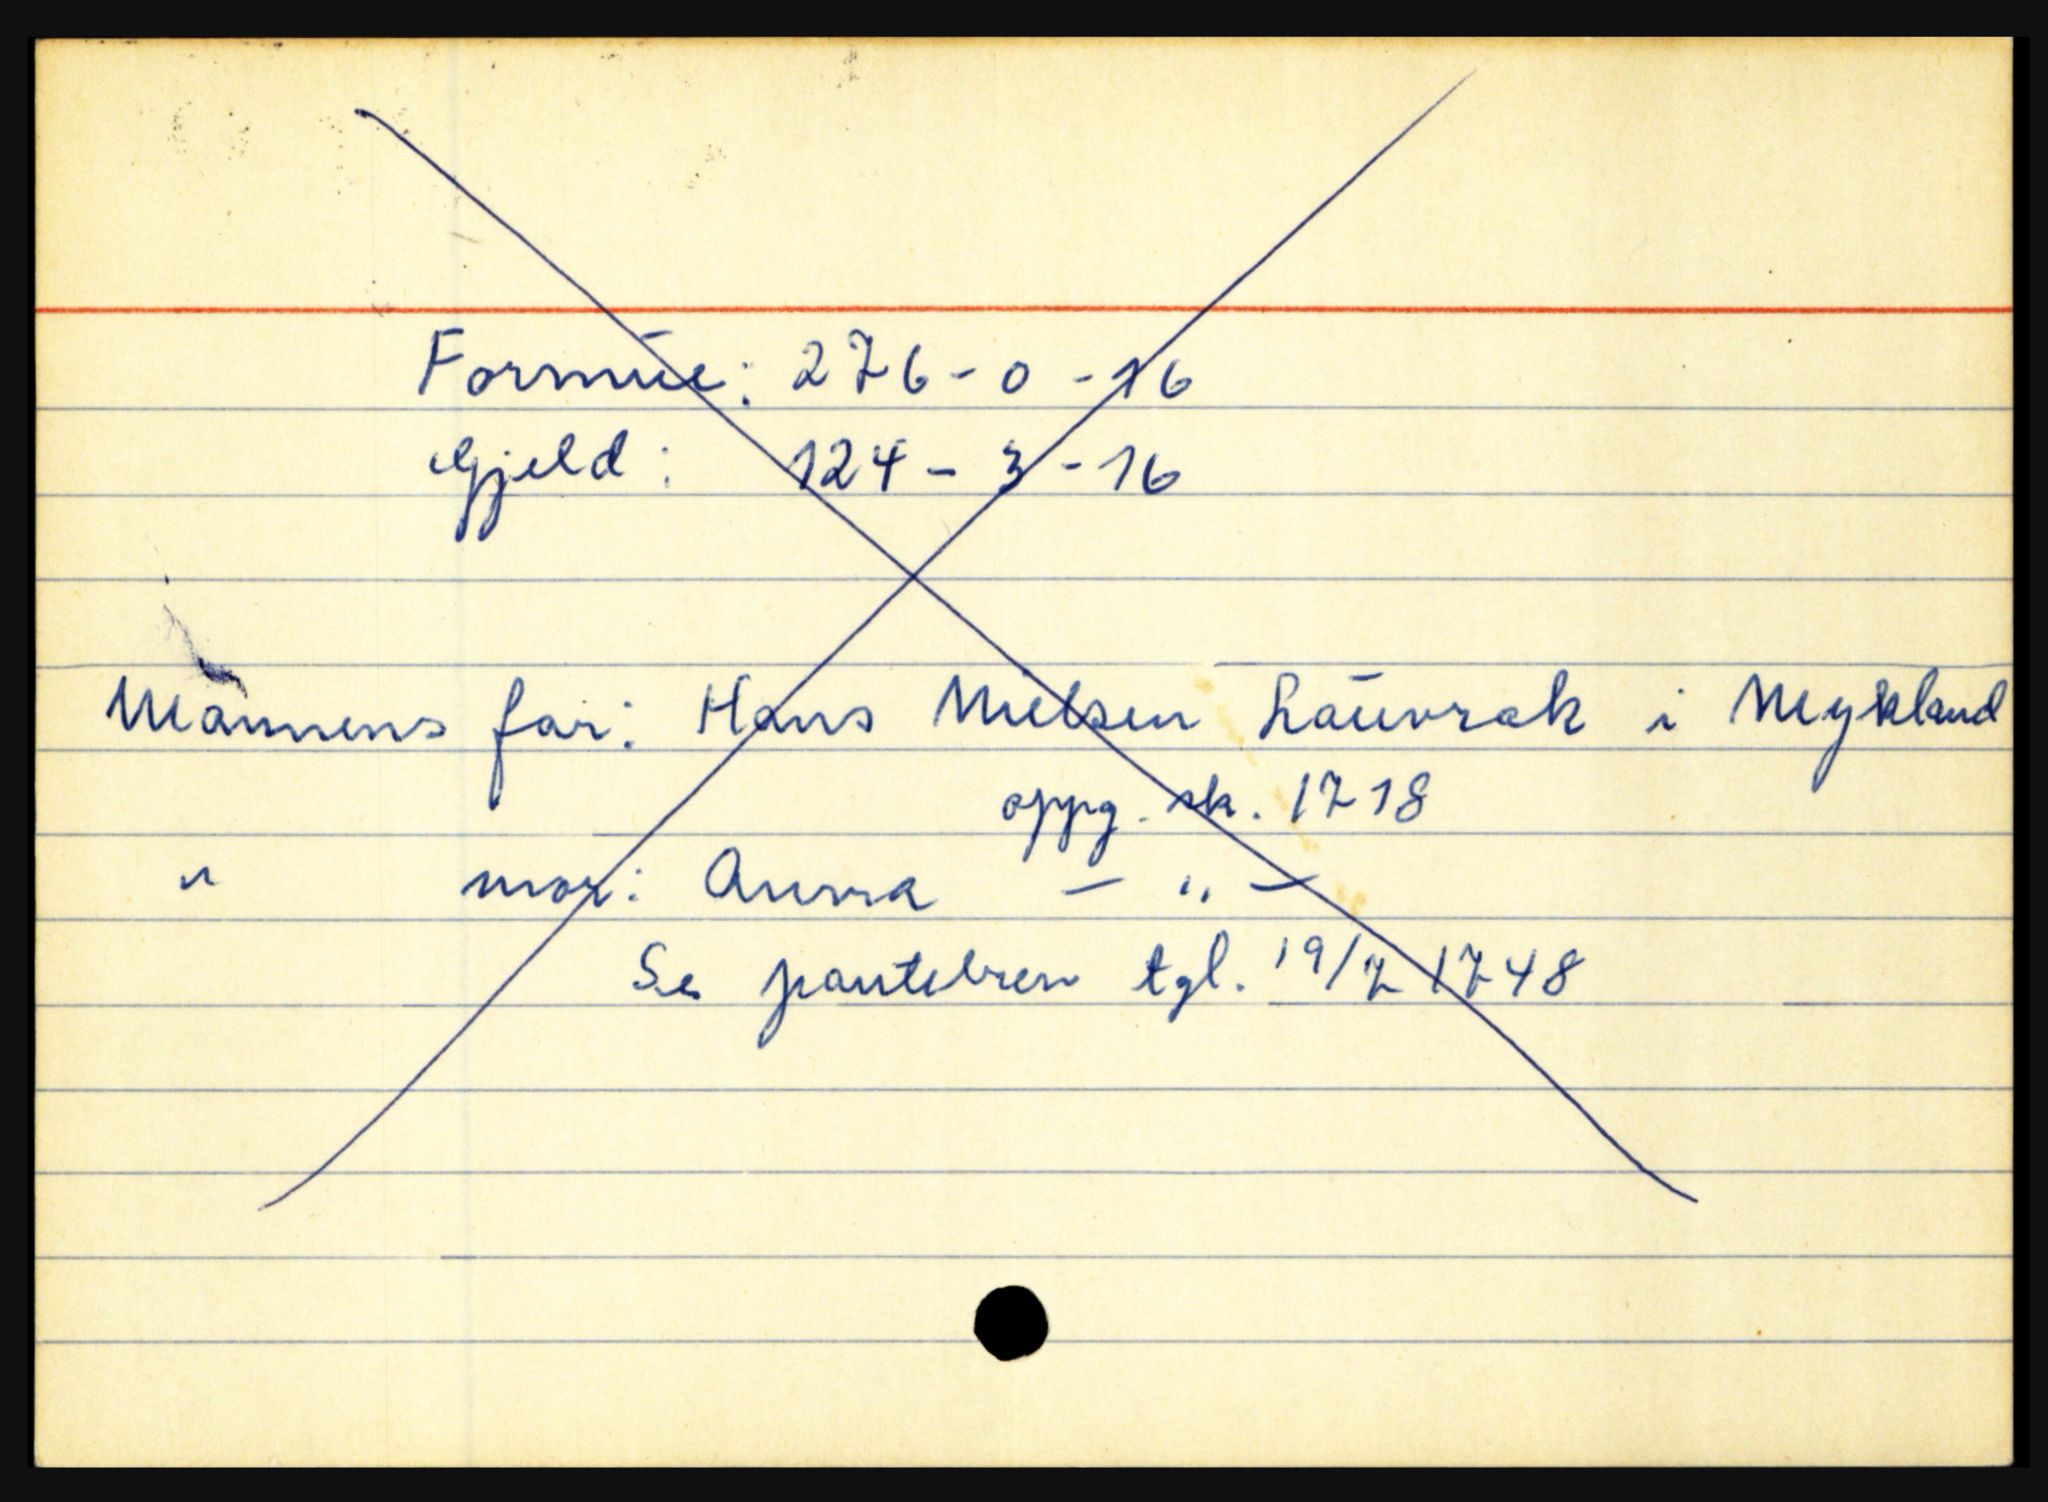 Formue: 276 - 0 - 16
Gjeld: 124 - 3 - 16
Mannens far: Hans Nielsen Lauvrak i Mykland
oppg. sk. 1718
" mor: Anna — " —
Se pantebren tgl. 19/7 1748